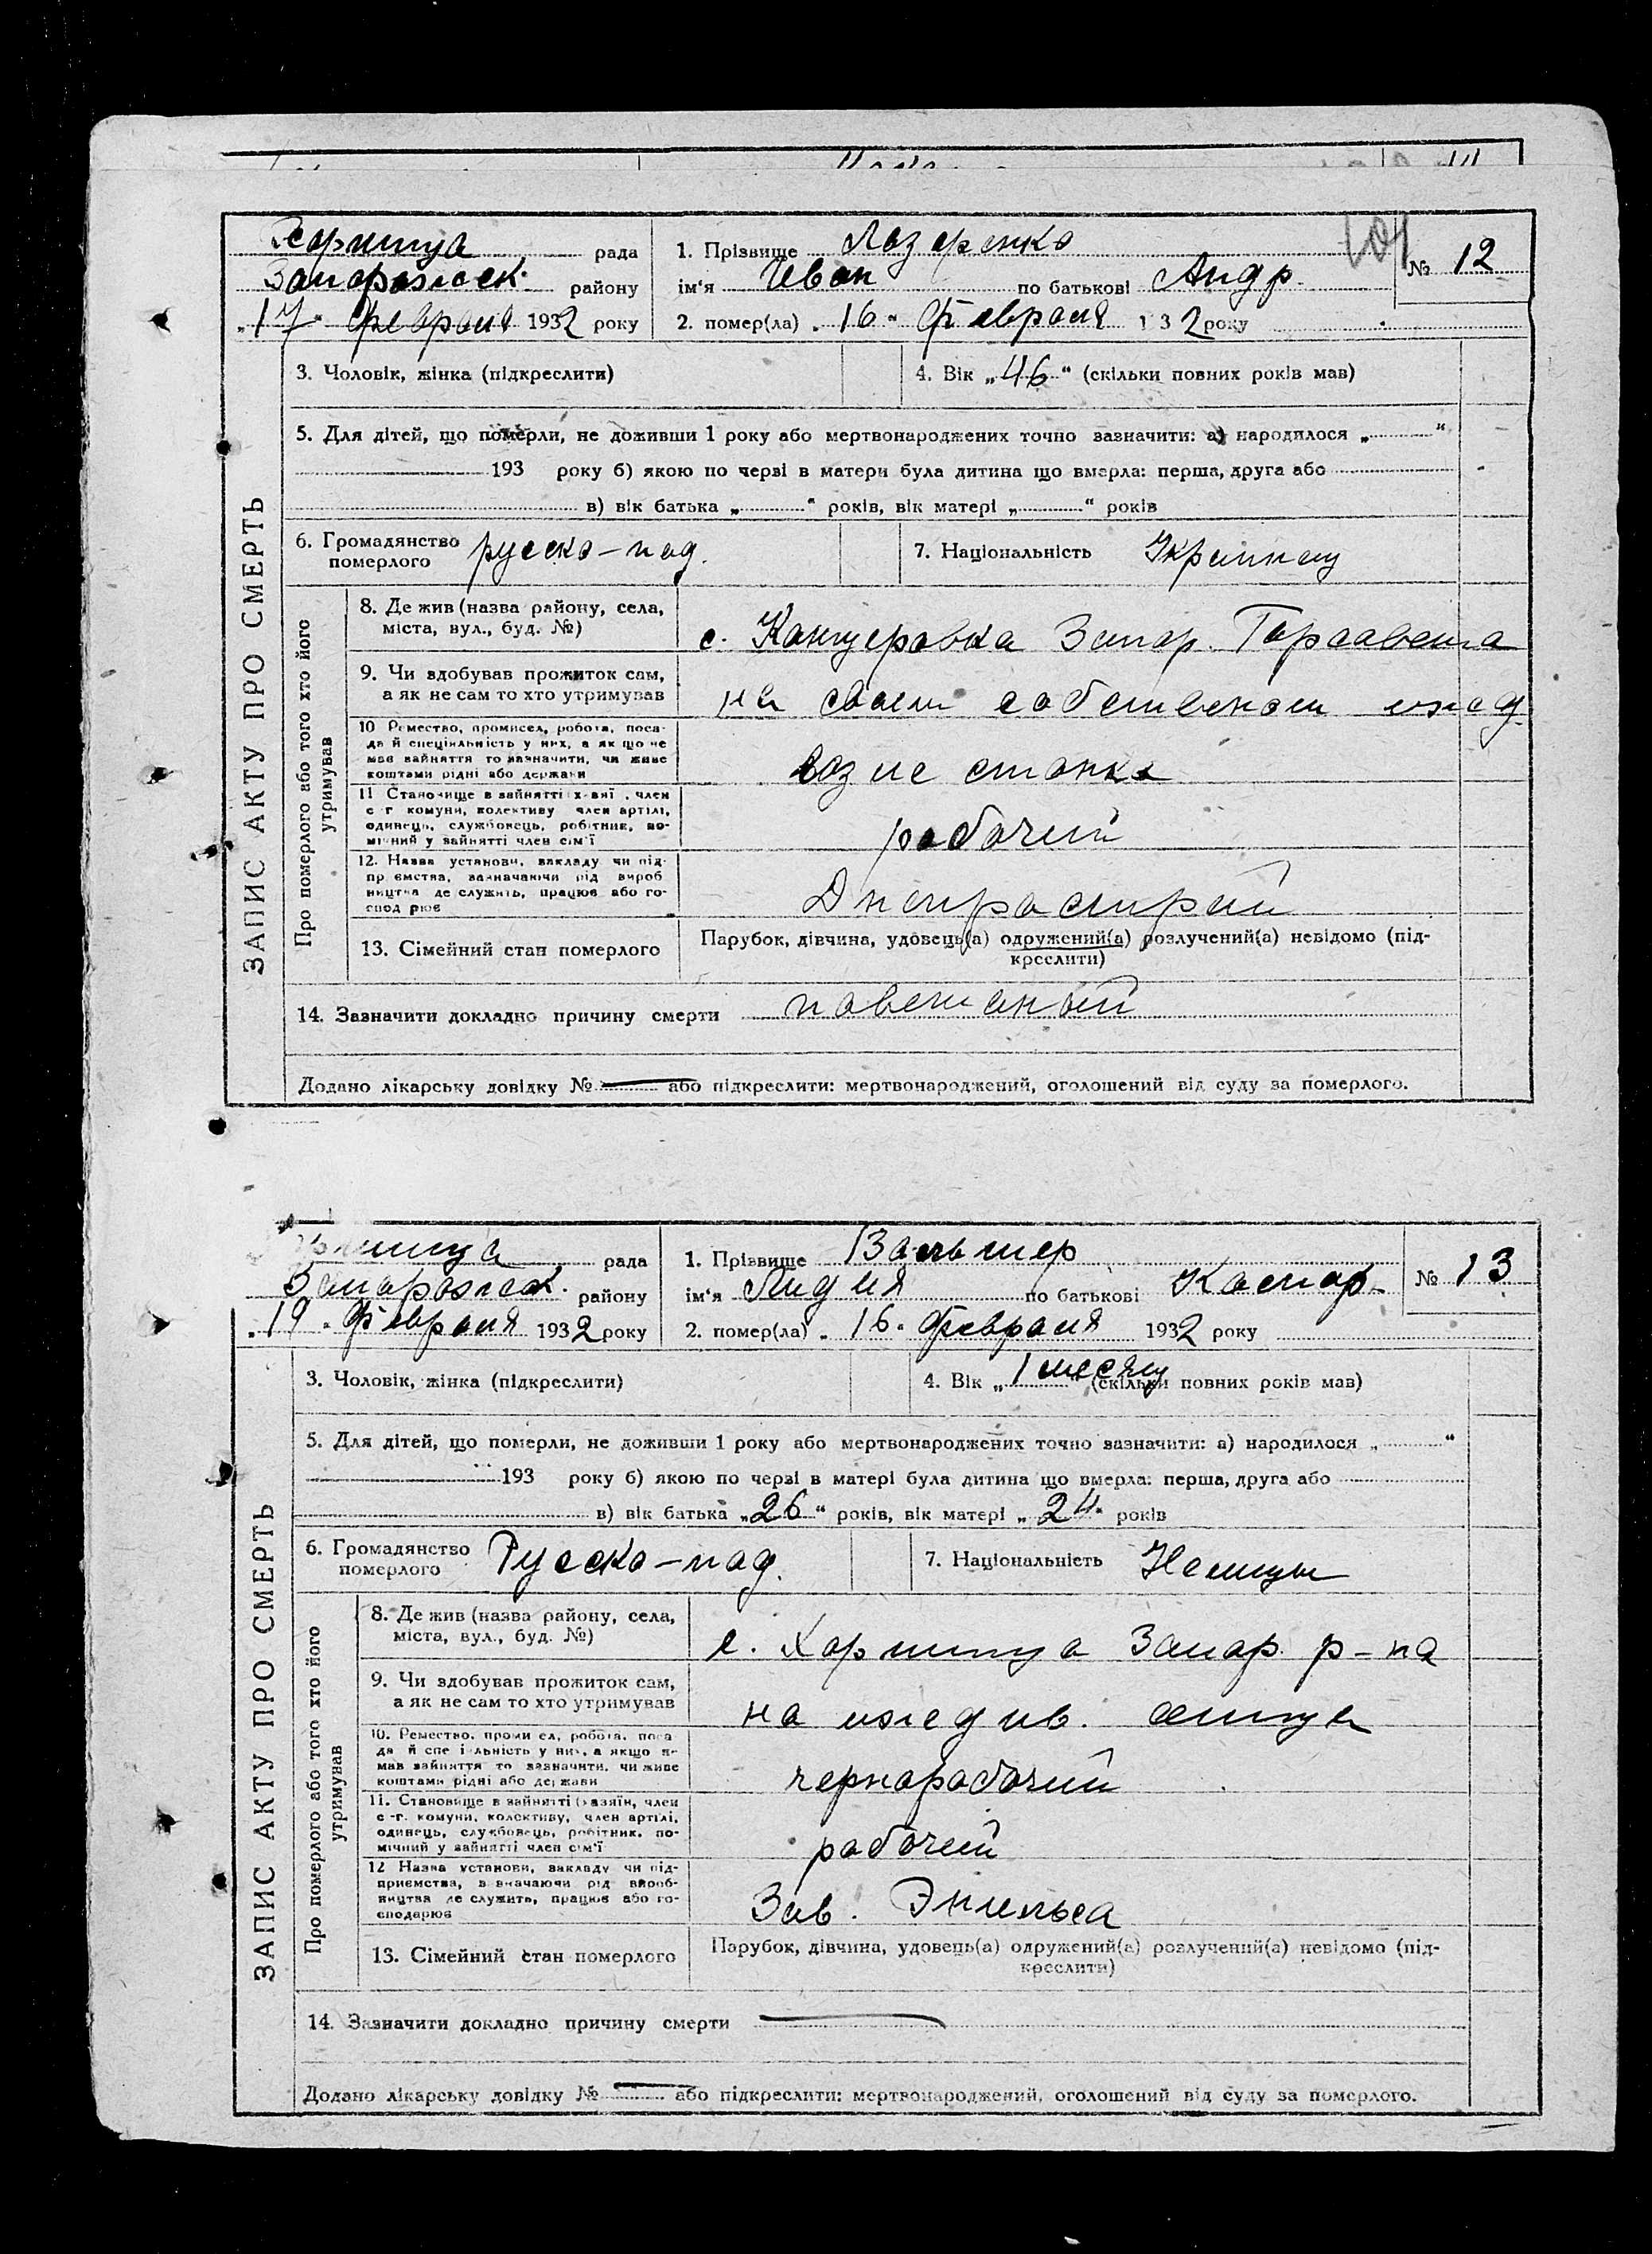 Хортица рада
Запорожск. району
„17“ февраля 1932 року
1. Прізвище Лазаренко
ім'я Иван по батькові Андр.
2. помер(ла) „16“ Февраля 1 3 2 року
№ 12
101
3. Чоловік, жінка (підкреслити)
4. Вік „46“ (скільки повних років мав)
5. Для дітей, що померли, не доживши 1 року або мертвонароджених точно зазначити: а) народилося „ “
193 року б) якою по черві в матери була дитина що вмерла: перша, друга або
в) вік батька „ “ років, вік матері „ “ років
6. Громадянство померлого руско-под.
7. Національність Украинец
ЗАПИС АКТУ ПРО СМЕРТЬ
Про померлого або того хто його утримував
8. Де жив (назва району, села,
міста, вул., буд. №)
с. Канцеровка Запор. Горсавета
9. Чи здобував прожиток сам,
а як не сам то хто утримував
на своем собственом ижд.
10 Ремество, промисел, робота, поса-
да й спеціяльність у них, а як що не
мав зайняття то зазначити, чи живе
коштами рідні або держави
возле станка
11 Становище в зайнятті х-вяї , член
с г комуни, колективу член артілі,
одинець, службовець, робітник, по-
мічний у зайнятті член сім'ї
рабочий
12. Назва установи, закладу чи під-
пр ємства, зазначаючи рід вироб
ництва де служить, працює або го-
спод рює
Днепрострой
13. Сімейний стан померлого
Парубок, дівчина, удовець(а) одружений(а) розлучений(а) невідомо (під-
креслити)
14. Зазначити докладно причину смерти повешаный
Додано лікарську довідку № або підкреслити: мертвонароджений, оголошений від суду за померлого.
Хортица рада
Запорожск. району
„19“ Февраля 1932 року
1. Прізвище Вальтер
ім'я Лидия по батькові Каспар.
2. помер(ла) „16“ Февраля 1932 року
№ 13
3. Чоловік, жінка (підкреслити)
4. Вік „1 месяц (скільки повних років мав)
5. Для дітей, що померли, не доживши 1 року або мертвонароджених точно зазначити: а) народилося „ “
193 року б) якою по черзі в матері була дитина що вмерла: перша, друга або
в) вік батька „26“ років, вік матері „24“ років
6. Громадянство померлого Руско-под.
7. Національність Немцы
ЗАПИС АКТУ ПРО СМЕРТЬ
Про померлого або того хто його утримував
8. Де жив (назва району, села,
міста, вул., буд. №)
с. Хортица Запор. р-на
9. Чи здобував прожиток сам,
а як не сам то хто утримував
на иждив. отца
10. Ремество, проми ел, робота, поса
да й спе і льність у них, а якщо н-
мав зайняття то зазначити, чи живе
коштами рідні або держави
чернорабочий
11. Становище в зайнятті (хазяїн, член
с -г. комуни, колективу, член артілі,
одинець, службовець, робітник, по-
мічний у зайнятті член сім'ї
рабочий
12 Назва установи, закладу чи під-
приємства, зазначаючи рід вироб-
ництва де служить, працює або го-
сподарює
Зав. Энгельса
13. Сімейний стан померлого
Парубок, дівчина, удовець(а) одружений(а) розлучений(а) невідомо (під-
креслити)
14. Зазначити докладно причину смерти
Додано лікарську довідку № або підкреслити: мертвонароджений, оголошений від суду за померлого.